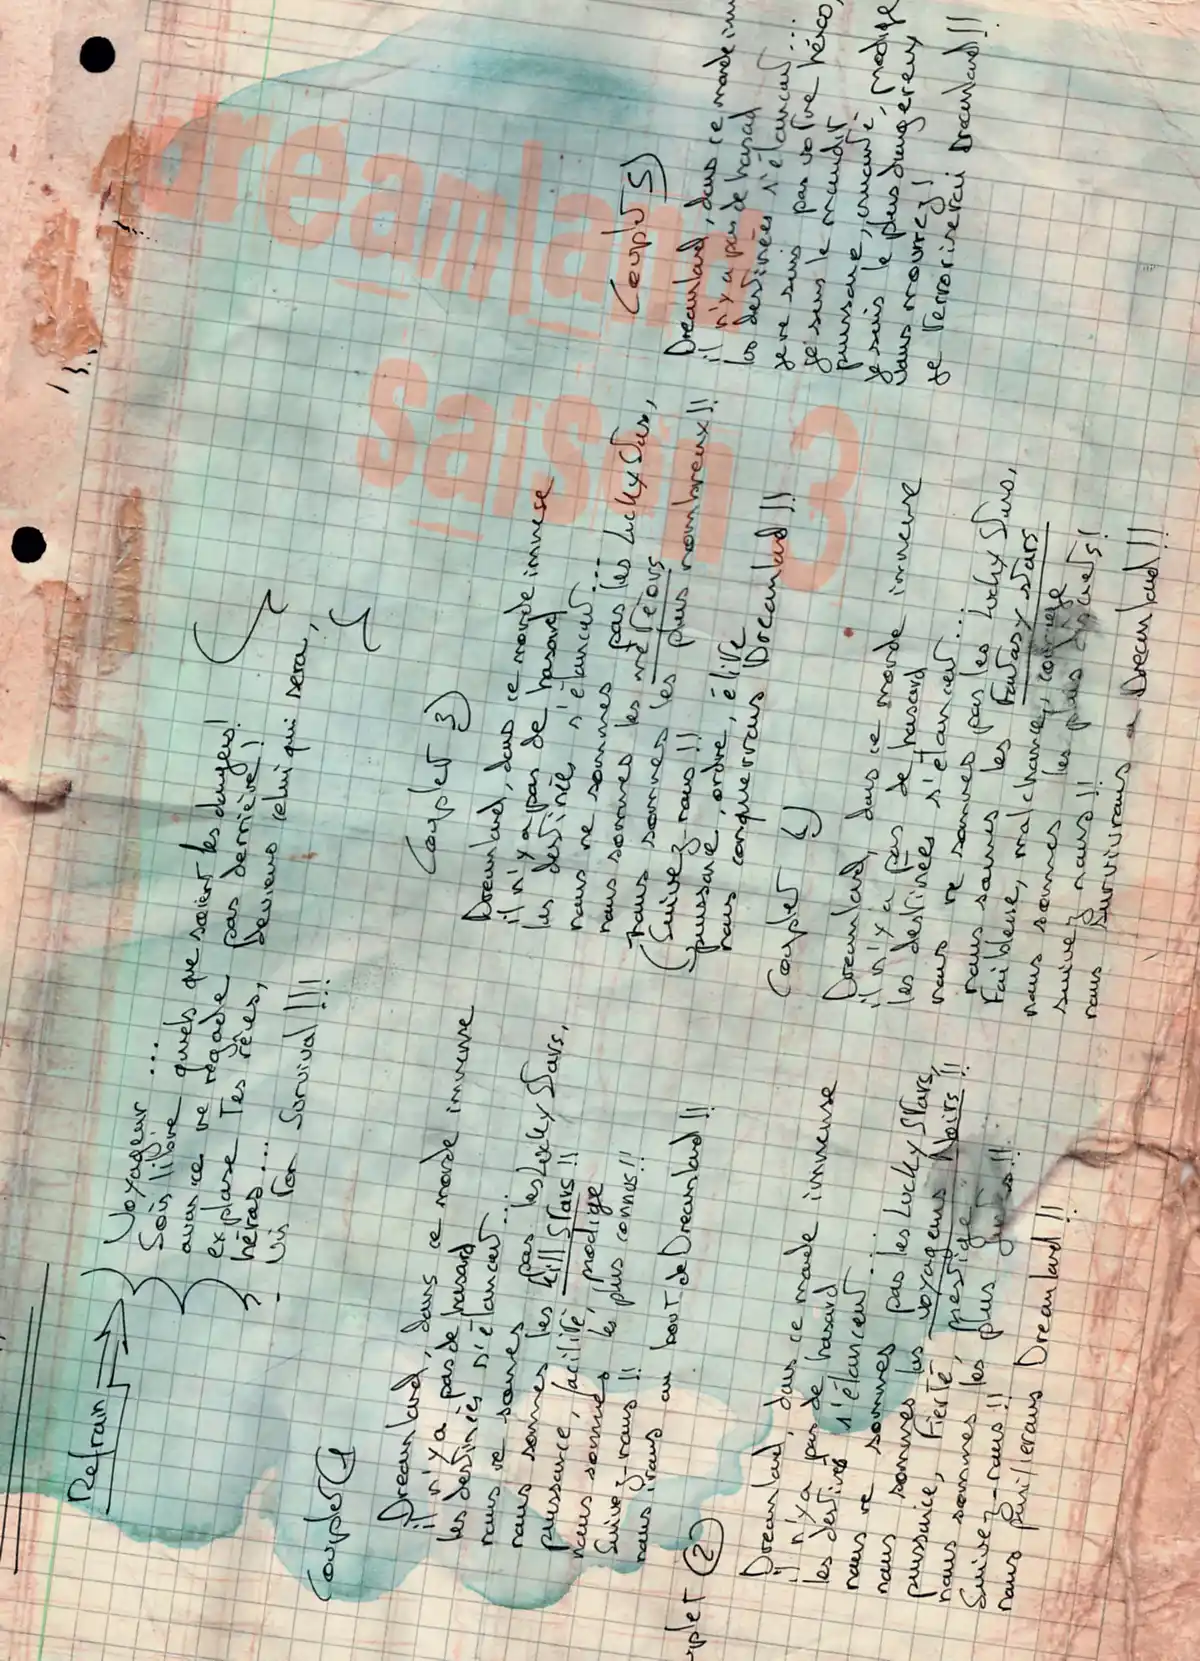 Dreamland
saison 3
Refrain
Voyageur ...
Sois libre
avance quels que soient les dangers!
explore ne regarde pas derrière!
Tes rêves, Deviens celui qui sera,
héros...
Vis for Survival!!!
Couplet 1
Dreamland, dans ce monde immense
il n'y a pas de hasard
les destinées s'élancent...
nous ne sommes pas les Lucky Stars,
nous sommes les Kill Stars!!
puissance, facilité, prodige
nous sommes les plus connus!!
Suivez-nous!!
nous irons au bout de Dreamland!!
Couplet 2
Dreamland, dans ce monde immense
il n'y a pas de hasard
les destinées s'élancent
nous ne sommes pas les Lucky Stars,
nous sommes les voyageurs Noirs!!
puissance, Fierté, prestige
nous sommes les plus
Suivez-nous!!
nous pillerons Dreamland!!
Couplet 3
Dreamland, dans ce monde immense
il n'y a pas de hasard
les destinées s'élancent...
nous ne sommes pas les Lucky Stars,
nous sommes les météors
nous sommes les plus nombreux!!
(Suivez-nous!!
puissance, ordre, élite
nous conquerrons Dreamland!!
Couplet
Dreamland, dans ce monde immense
il n'y a pas de hasard
les destinées s'élancent...
nous ne sommes pas les Lucky Stars,
nous sommes les Fantasy Stars
Faiblesse, malchance, courage
nous sommes les plus discrets!
suivez nous!!
nous survivrons a Dreamland!!
Couplet 5
Dreamland, dans ce monde imm
il n'y a pas de hasard
les destinées s'élancent...
je ne suis pas votre héros,
je suis le maudit
puissance, cruauté, prodige
je suis le plus dangereux
Vous mourrez!
je terroriserai Dreamland!!